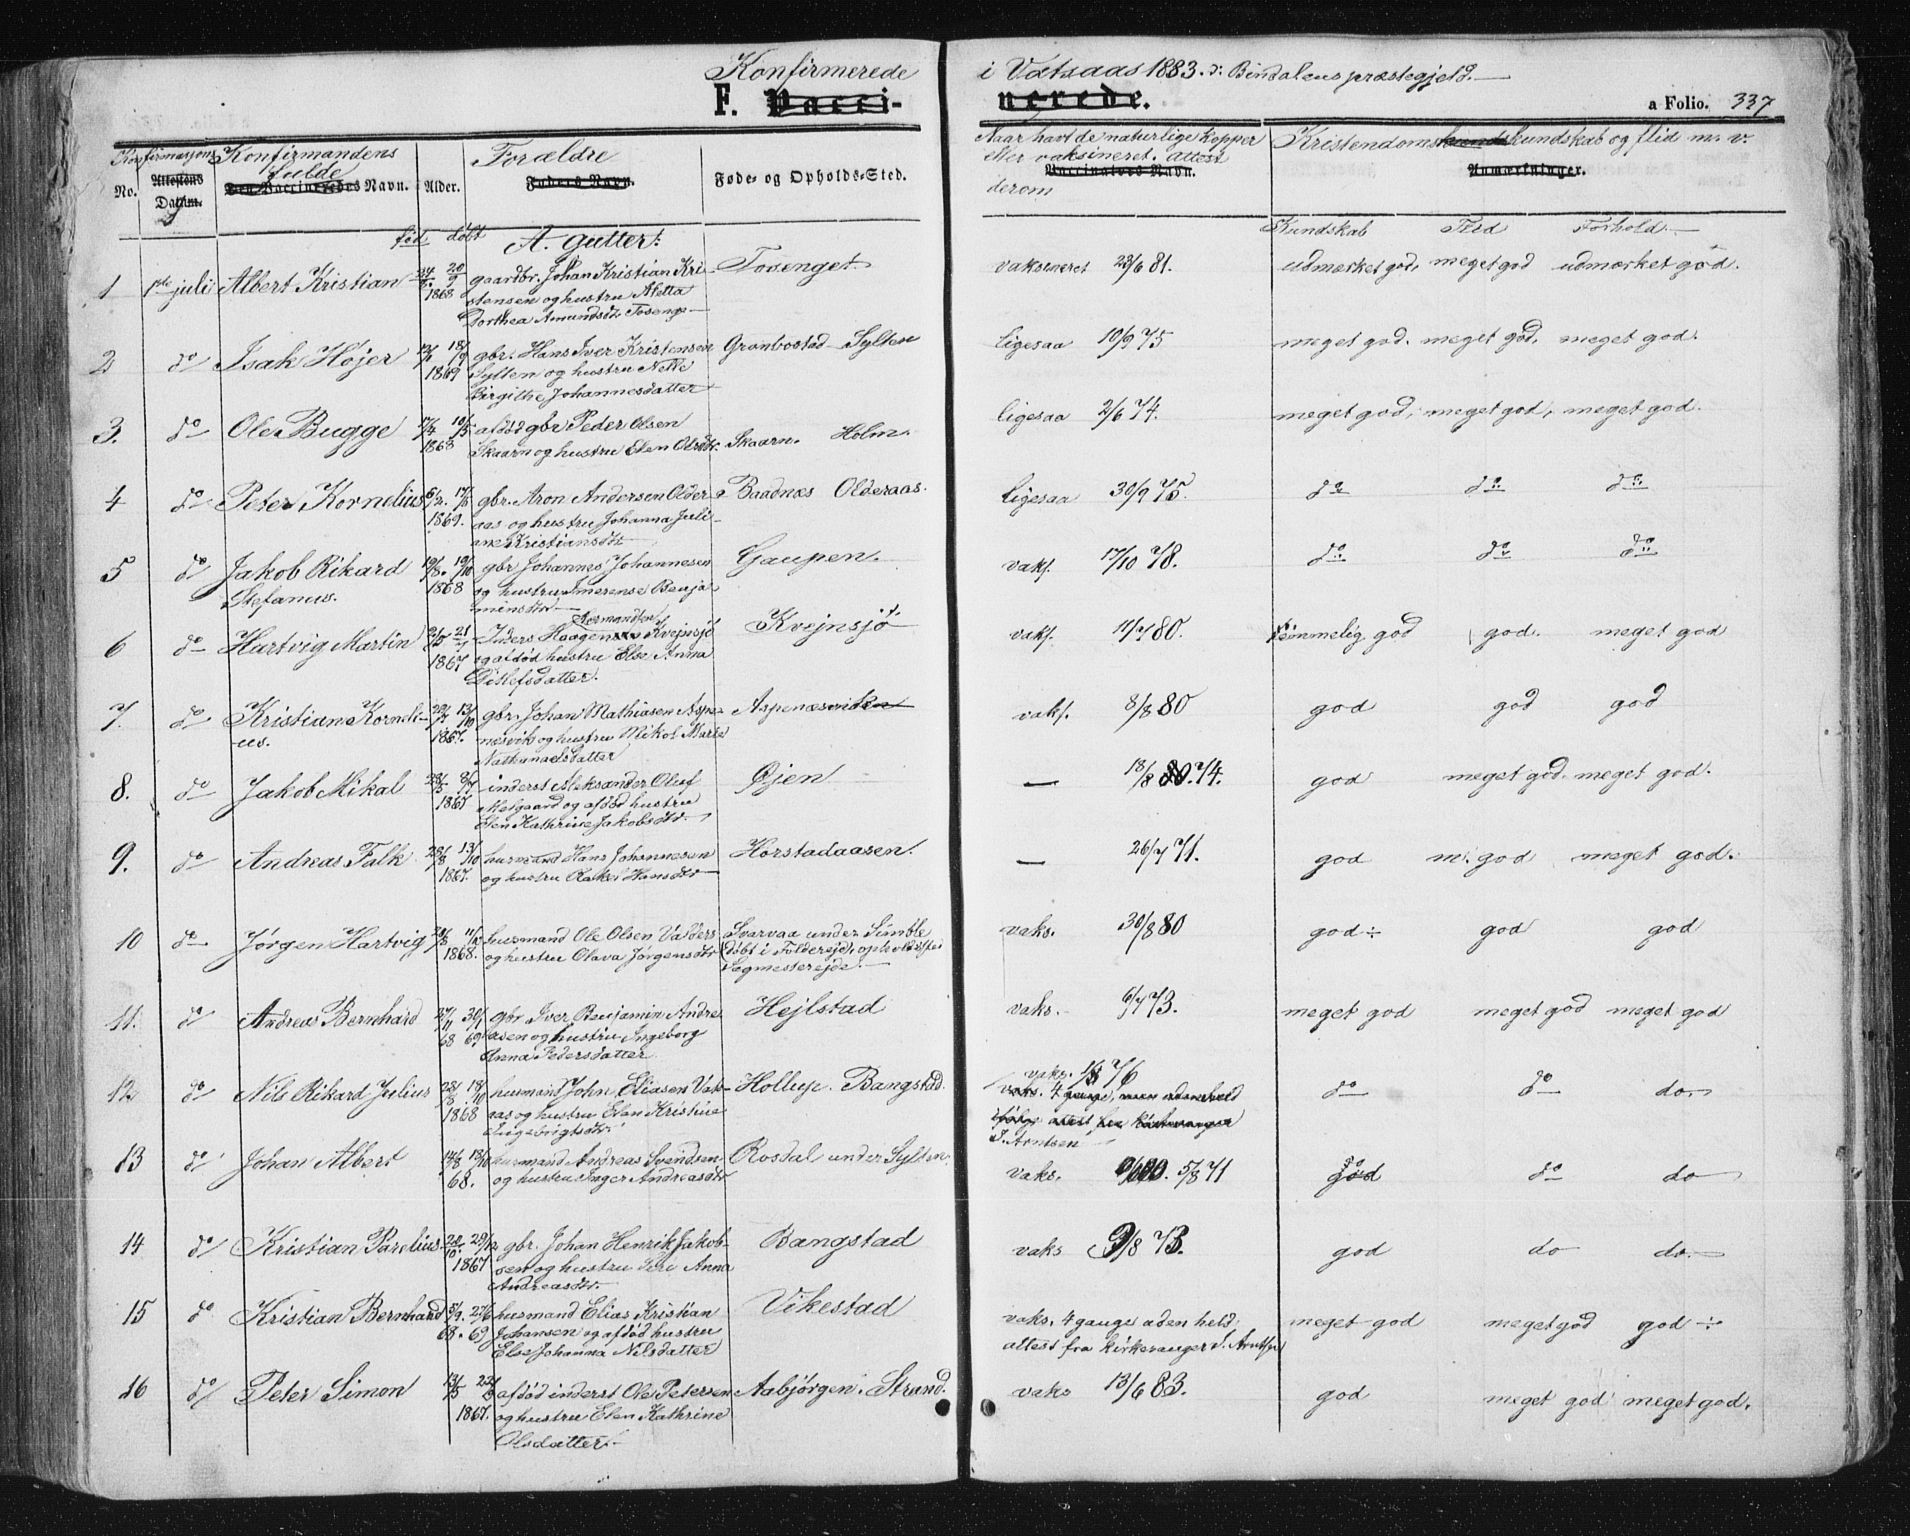 Konfirmerede i Vatsaas 1883. d: Bindalens præstegjeld.
F. Vacci-nerede.
a Folio. 337
No.
Konfirmasjons
Attestens Datum.
Konfirmandens fulde
Den Vaccineredes Navn.
Alder.
Forældre
Faders Navn.
Føde- og Opholds-Sted.
Naar havt de naturlige kopper
eller vaksineret. attest
Vaccinators Navn.
derom
Kristendomskundskab og flid m. v.
Anmærkninger.
fød døbt
A. gutter:
Kundskab Flid Forhold.
1 1ste juli Albert Kristian 24/8 20/9 1868 gaardbr. Johan Kristian Kri- Tosenget. vaksineret 23/6 81. udmærket god, meget god udmærket god.
stensen og hustru Aletta
Dorthea Amundsdtr Tosenge
2 do Isak Højer 18/9 1869 gbr. Hans Iver Kristensen Grønbostad Sylten ligesaa 10/9 75 meget god. meget god, meget god.
Sylten og hustru Nette
Birgithe Johannesdatter
3. do Ole Bugge 17/4 10/5 1868 afdød gbr Peder Olsen ligesaa 2/6 74. meget god, meget god, meget god.
Skaarn og hustru Elen Olsdtr. Skaarn. Holm.
4 do Peter Kornelius 6/2. 17/5 1869. gbr. Aron Andersen Older- Baadnæs Olderaas. ligesaa 30/9 75. do do do
aas og hustru Johanna Juli-
ane Kristiansdtr
5 do Jakob Rikard 19/8. 19/10 1868 gbr Johannes Johannesen Gaupen. vaks. 17/10 78. do do do
Stefanus. og hustru Imerense Benja
minsdtr
6 do Hartvig Martin 21/5 21/7 1867 Inders Haagen Kvejnsjö Kvejnsjö vaks. 11/7 80. temmelig god god. meget god
og afdød hustru Else Anna
Ditlefsdatter.
7. do Kristian Korneli- 13/10 1867. gbr. Johan Mathiasen Aspe- Aspenæsviken vaks. 8/8 80 god god god
us. nesvik og hustru Nikol. Marie
Nathanaelsdatter
8. do Jakob Mikal 28/5 8/7 1867 inderst Aleksander Oluf Øjen — 18/8 80. 74. god meget god. meget god.
Melgaard og afdød hustru
Elen Kathrine Jakobsdtr.
9. do Andreas Falk 28/8 13/10 1867. husmand Hans Johannesen Horstadaasen. — 26/7 71. god m. god meget god.
og hustru Rakel Hansdtr
10 do Jørgen Hartvig 11/12 1868. husmand Ole Olsen Valders Svarvaa under Simble vaks. 30/8 80 god ÷ god god
og hustru Olava Jørgensdtr (døbt i Foldereid), opholdssted
Sagmestereide.
11. do Andreas Bernhard 27/11 68 30/1 69 gbr Iver Benjamin Andre Hejlstad vaks. 6/7 73. meget god meget god meget god
asen og hustru Ingeborg
Anna Pedersdatter
12 do Nils Rikard Julius 28/8 18/10 1868 husmand John Eliasen Vats- Hollup. Bangstad. vaks. 76 do do do.
aas og hustru Elen Kristine vaks. 4 gange, men uden held
Ingebrigtsdtr ifølge attest fra kirkesanger
S. Arntsen
13 do Johan Albert 14/8 18/10 68. husmand Andreas Svendsen Rosdal under Sylten. vaks. 5/8 71 do do do
og hustru Inger Andreasdtr
14 do Kristian Parelius 20/10. 29/12 1867 gbr. Johan Henrik Jakob- Bangstad vaks 9/8 73. god do do.
sen og hustru Siri Anna
Andreasdtr.
15 do Kristian Bernhard 5/9. 68. 27/6 69 husmand Elias Kristian Vikestad vaks. 4 gange uden held. meget god meget god god ÷
Johansen og afdød hustru attest fra kirkesanger S. Arntsen
Else Johanna Nilsdatter
16 do Peter Simon 13/5 1867. afdød inderst Ole Petersen Aabjørgen. Strand. vaks 13/6 83. god meget god meget god.
og hustru Elen Kathrine
Olsdatter.